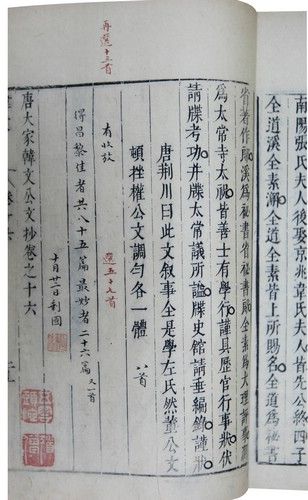 南陽張氏夫人後娶京兆韋氏夫人皆先公終四子
全道溪全素澥全道全素皆上所賜名全道為秘書
省著作郎溪為秘書省秘書郎全素為大理評事
為太常寺太祝皆善士有學行謹具歷官行事狀伏
請牒考功并牒太常議所諡牒史館請垂編錄謹狀
唐荊川曰此文叙事全是學左氏然董公文
頓挫權公文調勻各一體
八首
有收放
選五十七首
再選十三首
得昌黎佳者共八十五篇最妙者二十六篇又一首
十月十二日利國
唐大家韓文公文抄卷之十六